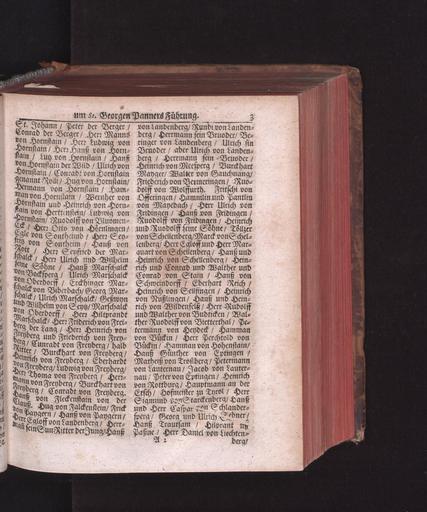 um St. Georgen Panners Führung. 3
St. Johann / Peter der Berger /
Conrad der Berger / Herr Manns
von Hornstain / Herr Ludwig von
Hornstain / Herr Hanß von Horn-
stain / Lutz von Hornstain / Hanß
von Hornstain der Wild / Ulrich von
Hornstain / Conradt von Hornstain
genannt / Haug von Hornstain /
Hermann von Hornstain / Ham-
man von Hornstain / Wernher von
Hornstain und Heinrich von Horn-
stain von Herttenstein / Ludwig von
Hornstain / Ruodolff von
Herr Otto von
Egle von Southeim / Herr Sey-
frid von Southeim / Hanß von
Herr Seyfrid der Mar-
schalck / Herr Ulrich und Wilhelm
seine Söhne / Hanß Marschalck
von Oberdorff / Ulrich Marschalck
von Oberdorff /
schalck von Biberbach / Georg Mar-
schalck / Ulrich Marschalck /
und Wilhelm von Marschalck
von Oberdorff / Herr
Marschalck / Herr Friderich von Frei-
berg der Lang / Herr Heinrich von
Freyberg und Friderich von Frey-
berg / Conradt von Freyberg / bald
Ritter / Burckhart von Freyberg /
Heinrich von Freyberg / Eberhardt
von Freyberg / Ludwig von Freyberg /
Herr Thoma von Freyberg / Herr-
mann von Freyberg / Burckhart von
Freyberg / Conradt von Freyberg.
Hanß von Fleckenstein von der
Hug von Falckenstein / Frick
von Paygern / Hanß von Paygern /
Herr Egloff von Landenberg / Herr-
mann sein Sun Ritter der Jung / Hanß
von Landenberg / Rudi von Landen-
berg / Herrmann sein Bruoder / Be-
ringer von Landenberg / Ulrich sin
Bruoder / aber Ulrich von Landen-
berg / Herrmann sein Bruoder /
Heinrich von Mörsperg / Burckhart
Mayger / Walter von Gauchnang /
Friderich von Bermeringen / Ruo-
dolff von Wolffurth. Fritsch von
Offeringen / Hammlin und Pantlin
von Mayebach / Herr Ulrich von
Fridingen / Hanß von Fridingen /
Ruodolff von Fridingen / Heinrich
und Ruodolff seine Söhne / Töltzer
von Schellenberg / Marck von Schel-
lenberg / Herr Egloff und Herr Mar-
quart von Schellenberg / Hanß und
Heinrich von Schellenberg / Hein-
rich und Conrad und Walther und
Conrad von Stain / Hanß von
Schweindorff / Eberhart Reich /
Heinrich von Seissingen / Heinrich
von Nußlingen / Hanß und Hein-
rich von Wildenfelß / Herr Rudolff
und Walther von Budicken / Wal-
ther Ruodolff von Bietterthal / Pe-
termann von Heydeck / Hamman
von Bücken / Herr Perchtold von
Bücken / Hamman von Hohenstain /
Hanß Günther von Eptingen /
Marhens von Troßberg / Petermann
von Lauternau / Jacob von Lauter-
nau / Peter von Eptingen / Heinrich
von Rottburg / Hauptmann an der
Etsch / Hofmeister zu Tyrol / Herr
Sigmund von Starckenberg / Hanß
und Herr Caspar von Schlander-
sperg / Georg und Ulrich
Hanß Trautsam / Hiltprant uß
Passyr / Herr Daniel von Liechten-
A 2 berg /